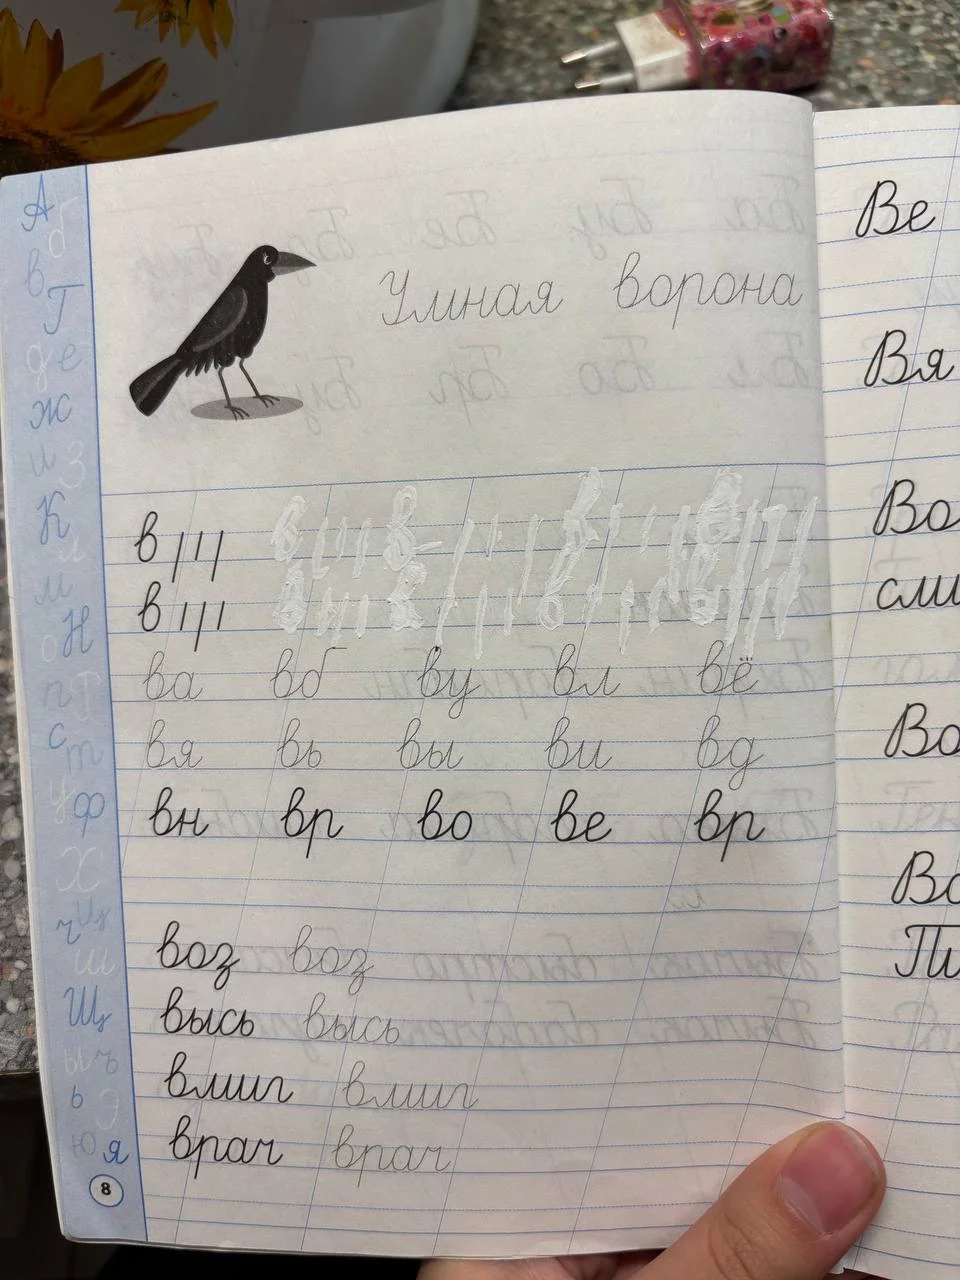 Умная ворона
в
в
ва вб ву вл вё
вя вь вы ви вд
вн вр во ве вр
воз воз
высь высь
вмиг вмиг
врач врач
А б в Г д е ж и З К л м о Н п Р с т у Ф Х ч Ц ш Щ ы ъ ь Э Ю я
8
Ве
Вя
Во
сли
Во
Во
Пи